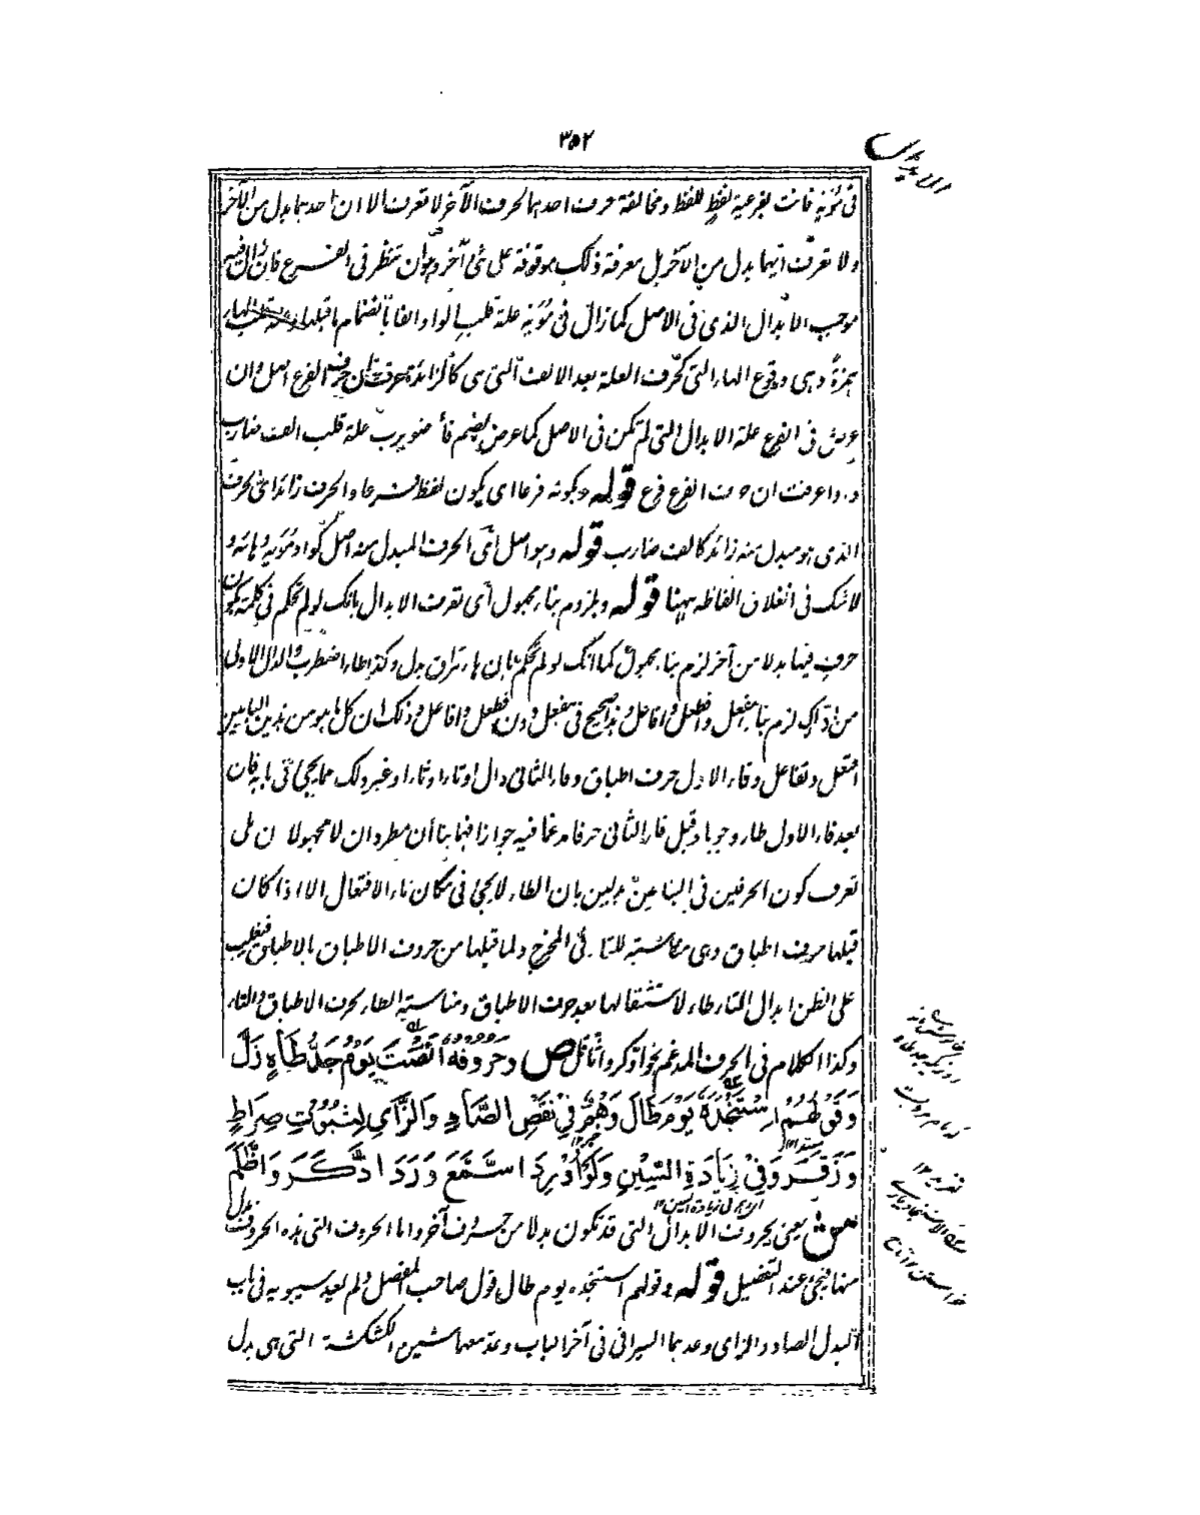 ٣٥٢
الابدال
فى مُوَيْهٍ فانت بفرعية لفظٍ للفظ ومخالفة حرف احدهما لحرف الآخر لا تعرف الا ان احدهما بدل من الآخر
ولا تعرف ايهما بدل من الآخر بل معرفة ذلك موقوفة على شئ آخر وهو ان تنظر فى الفرع فان زال فيه
موجب الابدال الذى فى الاصل كما زال فى مُوَيْه علة قلب الواو الفا بانضمام ما قبلها وعلة قلب الهاء
همزةً وهى وقوع الهاء التى كحرف العلة بعد الالف التى هى كالزائدة عرفت ان حرف الفرع اصل وان
عرض فى الفرع علة الابدال التى لم تكن فى الاصل كما عرض بضم فاء ضويرب علة قلب الف ضارب
واوا عرفت ان حرف الفرع فرع قوله وبكونه فرعا اى يكون لفظ فرعا والحرف زائدا اى الحرف
الذى هو مبدل منه زائد كالف ضارب قوله وهو اصل اى الحرف المبدل منه اصل كواو مُوَيْه وهائه و
لا شك فى انغلاق الفاظه ههنا قوله ويلزوم بناء مجهول اى تعرف الابدال بانك لو لم تحكم فى كلمة بكون
حرف فيها بدلا من آخر لزم بناء مجهول كما انك لو لم تحكم بان هاء هراق بدل وكذا طاء اضطرب والدال الاولى
من اداّرك لزم بناء هفعل وافطعل وافاعل وهذا صحيح فى هفعل دون افطعل وافاعل وذلك ان كل ما هو من هذين البابين
افتعل وتفاعل وفاء الاول حرف اطباق وفاء الثانى دال او تاء او ثاء او غير ذلك مما يجئ فى بابه فان
بعد فاء الاول طاء وجوبا وقبل فاء الثانى حرفا مدغما فيه جوازا فهما بناآن مطردان لا مجهولان بلى
تعرف كون الحرفين فى البناءين بدلين بان الطاء لا يجئ فى مكان تاء الافتعال الا اذا كان
قبلها حرف اطباق وهى مناسبة للتاء فى المخرج ولما قبلها من حروف الاطباق بالاطباق فيغلب
على الظن ابدال التاء طاء لاستثقالها بعد حروف الاطباق ومناسبة الطاء لحرف الاطباق والتاء
وكذا الكلام فى الحرف المدغم نحو اذّكر واثّاقل ص وحروفه أنْصَتَ يَوْمُ جَدُّ طَاهٍ زَلَّ
وَقَوْلُهُمْ اسْتَنْجَدَهُ يَوْمَ طَالَ وَهْمٌ فِيْ نَقْصِ الصَّادِ وَالزَّايِ لِثُبُوْتِ صِرَاطٍ
وَزَقَرَ وَفِيْ زِيَادَةِ السِّيْنِ وَلَوْ أُوْرِدَ اسَّمَعَ وَرَدَ اذَّكَرَ وَاظَّلَمَ
ش يعنى بحروف الابدال التى قد تكون بدلا من حروف آخر واما الحروف التى هذه الحروف بدل
منها فيجئ عند التفصيل قوله وقولهم استنجده يوم طال قول صاحب المفصل ولم يعد سيبويه فى باب
البدل الصاد والزاى وعدهما السيرافى فى آخر الباب وعدّ معهما شين الكشكشة التى هى بدل